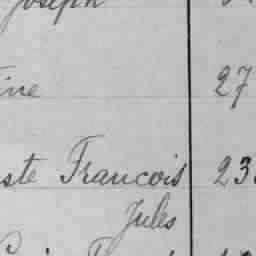 Joseph
ine 27
ste Francois 23
Jules